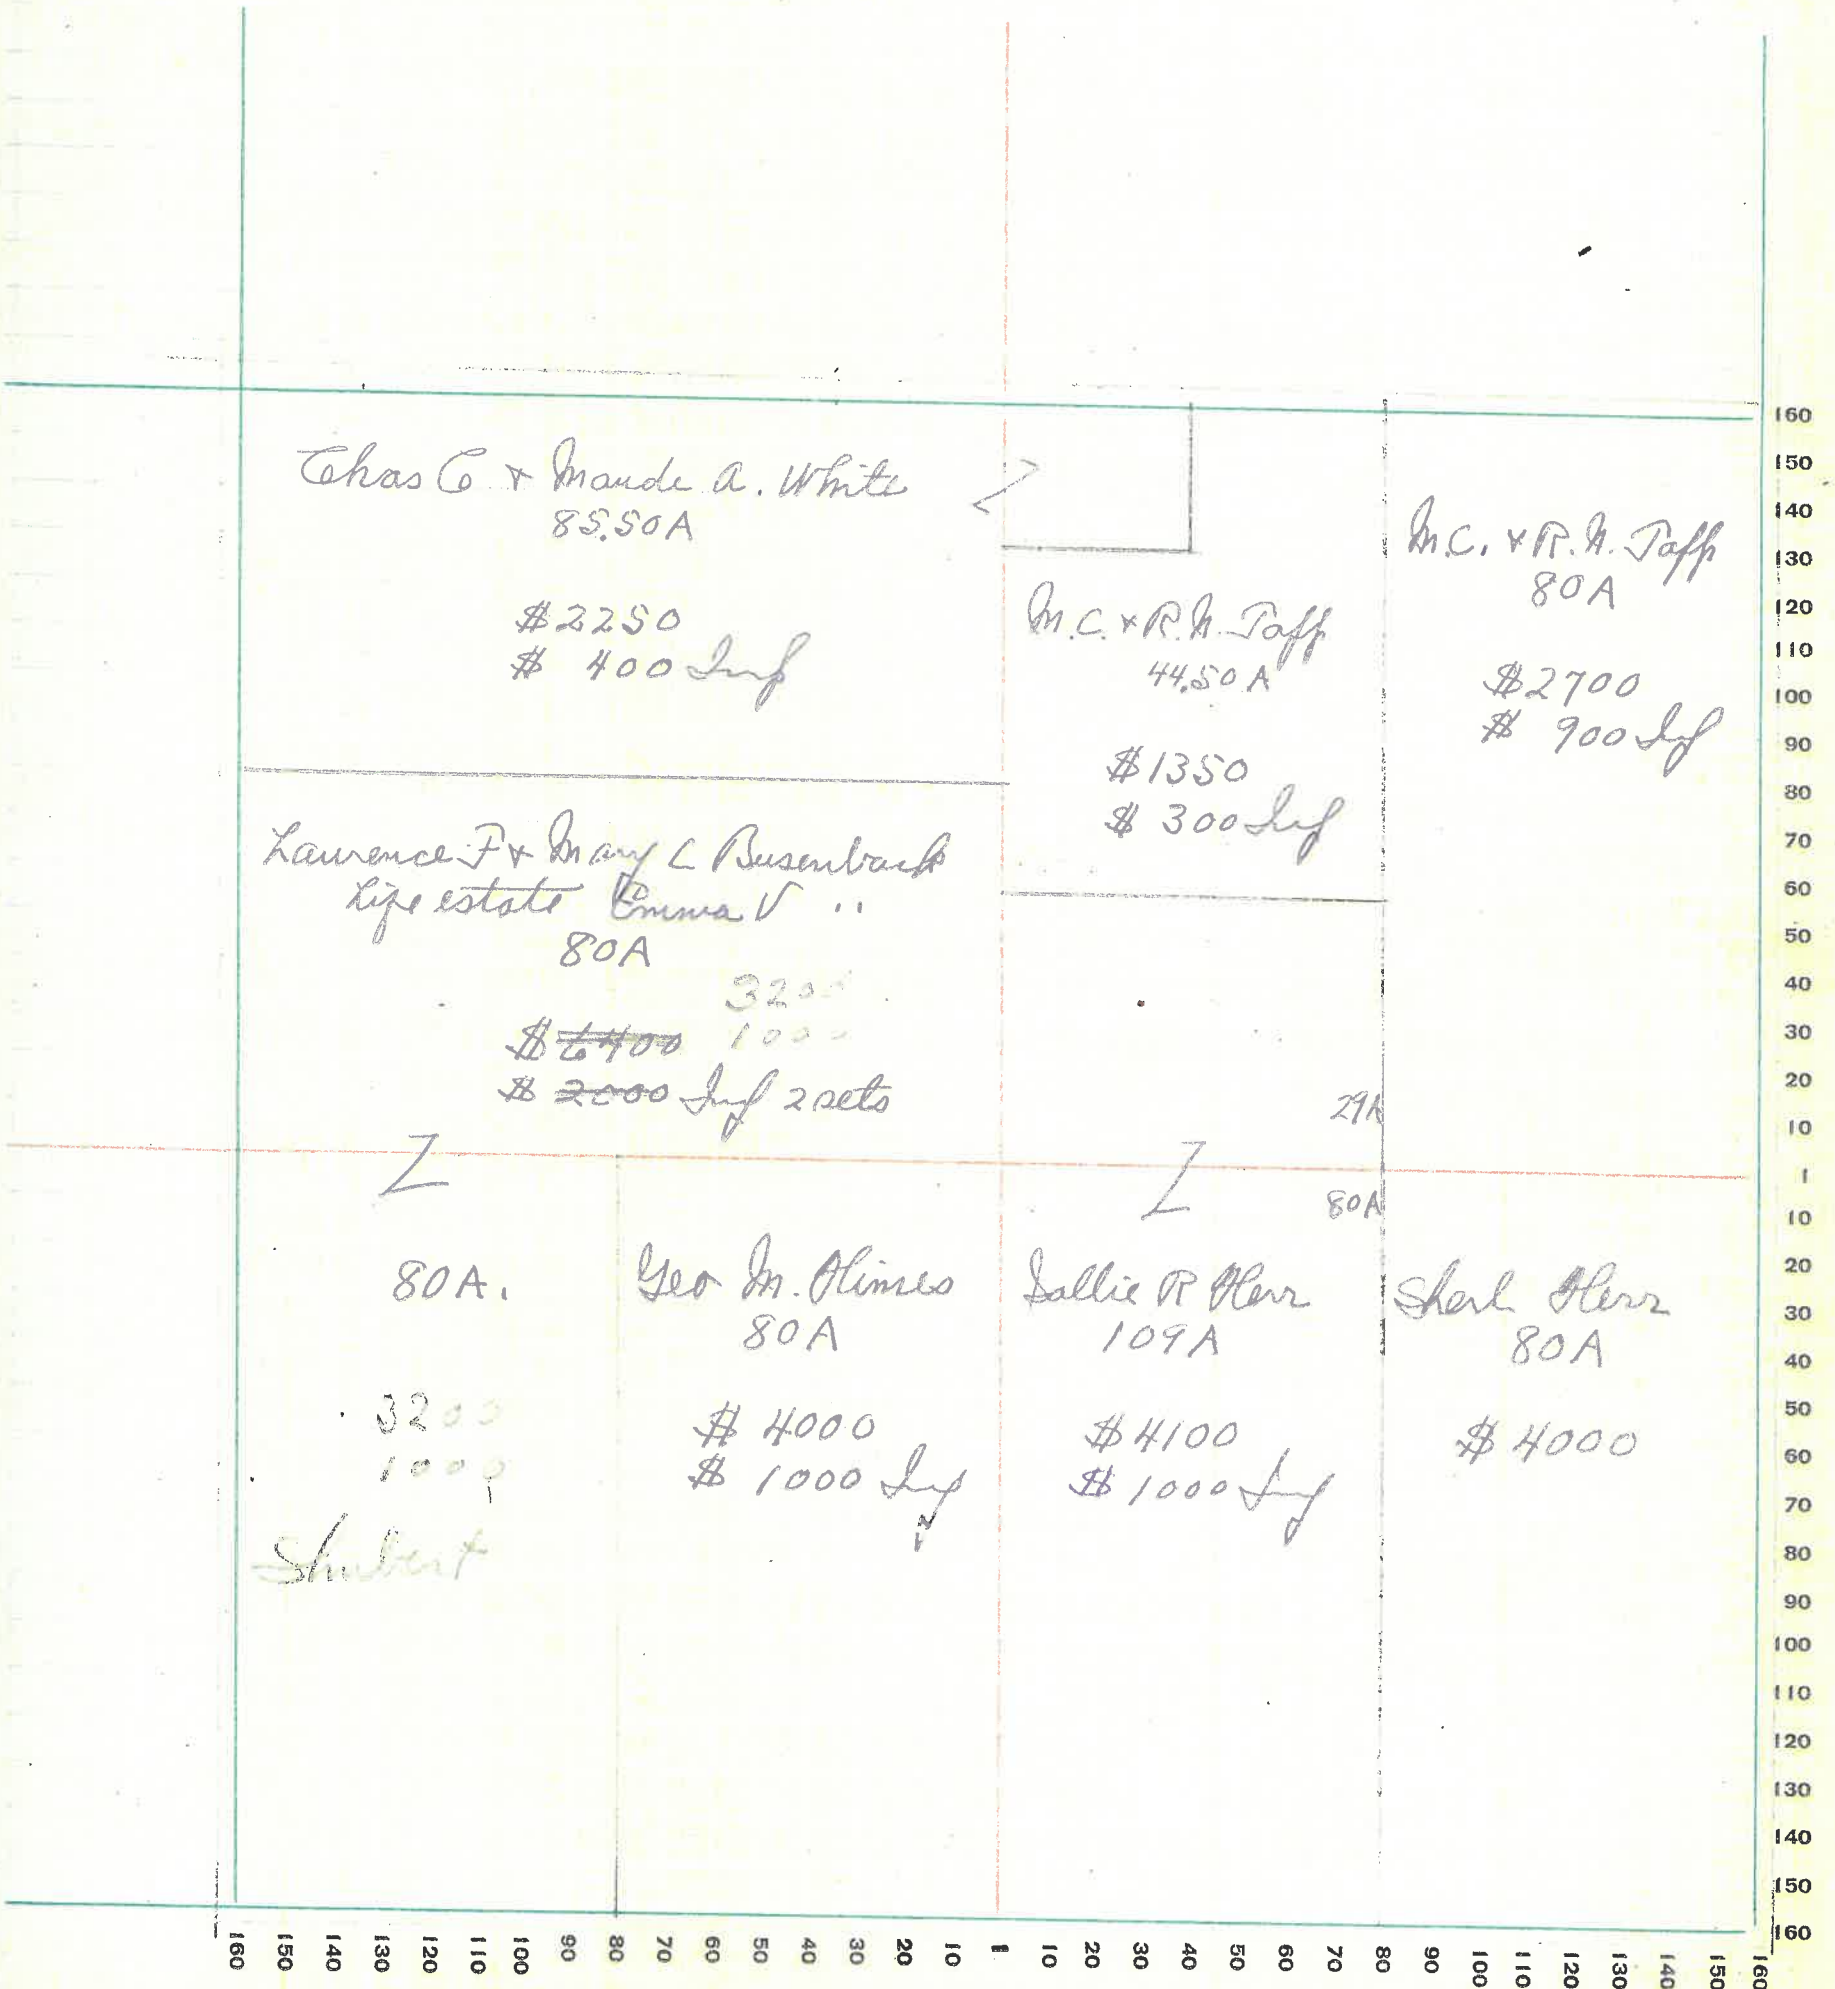 Chas C + Maude A. White
85.50A
$2250
$ 400 Imp
M.C. + R.N. Taff
44.50 A
$1350
$ 300 Imp
M.C. + R.N. Taff
80A
$2700
$ 900 Imp
Laurence F + Mary L Busenbark
Life estate Emma V "
80A
3200
$ 6400 1000
$ 2000 Imp 2 sets
29A
80A
80A.
3200
1000
Shubert
Geo M. Himes
80A
$ 4000
$ 1000 Imp
Sallie R Herr
109A
$4100
$ 1000 Imp
Herr
80A
$ 4000
160
150
140
130
120
110
100
90
80
70
60
50
40
30
20
10
1
10
20
30
40
50
60
70
80
90
100
110
120
130
140
150
160
160 150 140 130 120 110 100 90 80 70 60 50 40 30 20 10 1 10 20 30 40 50 60 70 80 90 100 110 120 130 140 150 160